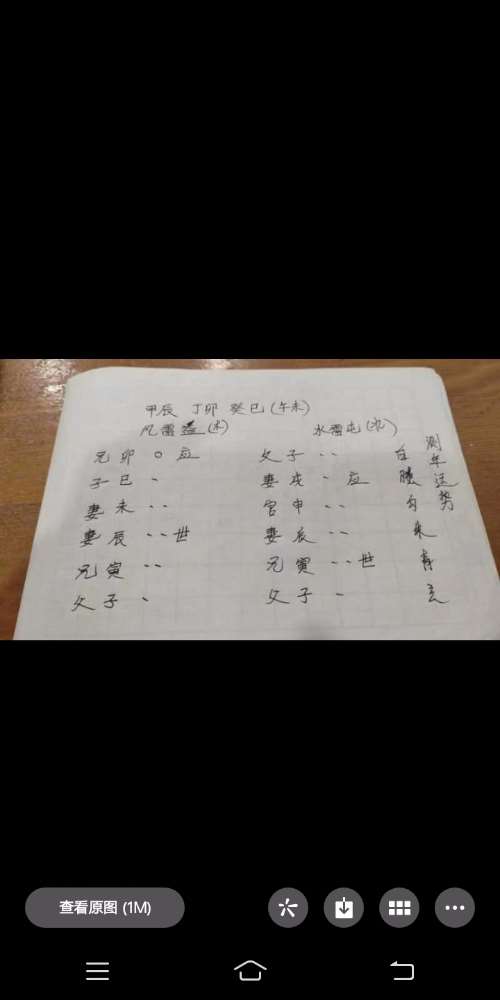 甲辰 丁卯 癸巳(午未)
风雷益(木) 水雷屯(水)
测年运势
兄卯 应 父子 白
子巳 妻戌 应 腾
妻未 官申 勾
妻辰 世 妻辰 朱
兄寅 兄寅 世 青
父子 父子 玄
查看原图 (1M)